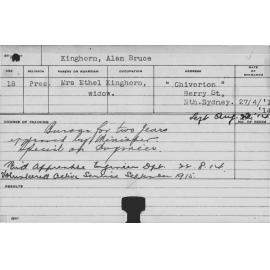 Kinghorn, Alan Bruce
AGE RELIGION PARENT OR GUARDIAN OCCUPATION ADDRESS DATE OF
18 Pres. Mrs Ethel Kinghorn, widow. "Chiverton" Berry St, Nth.Sydney. 27/4/'1
Sept Aug
COURSE OF TRAINING
for two years
approved by Minister
Special as Engineer.
Paid Apprentice Engineer Dpt. 22.8.14.
Volunteered Active Service September 1915.
RESULTS